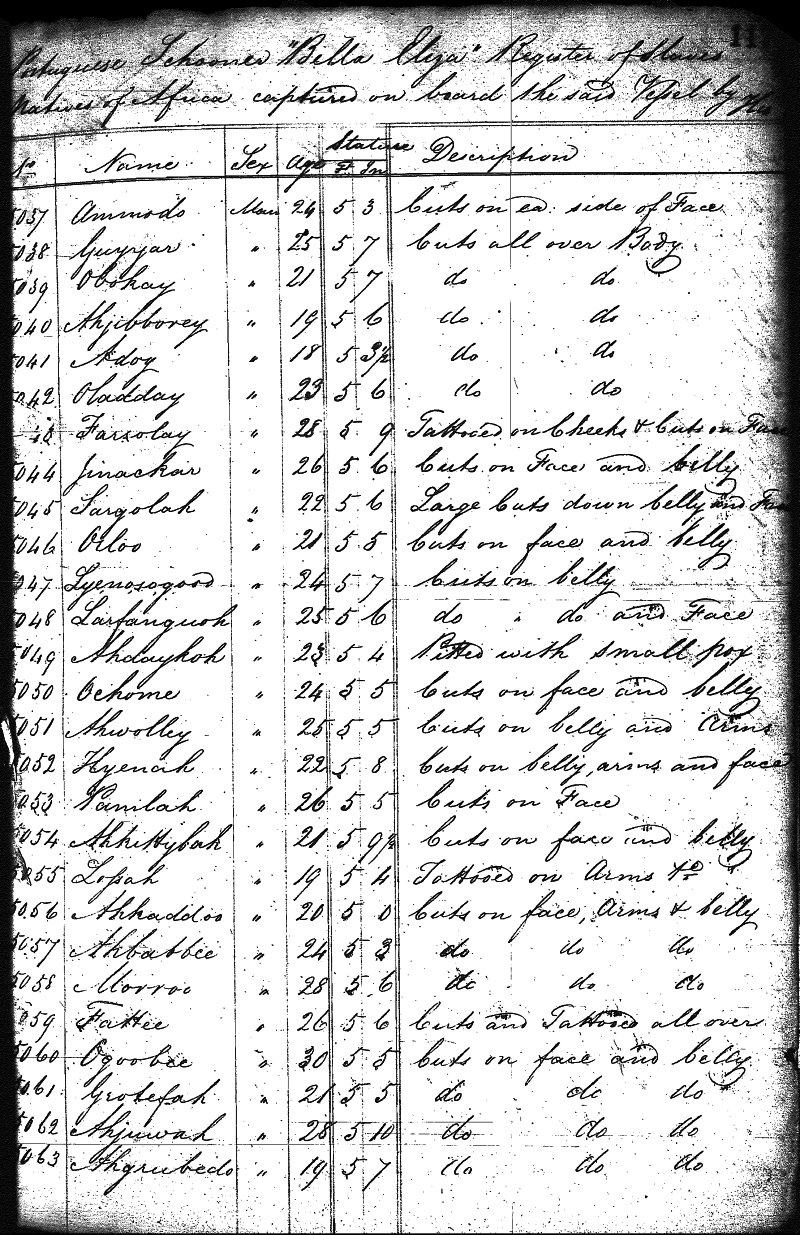 Portuguese Schooner "Bella Eliza" Register of Slaves
Natives of Africa captured on board the said Vessel by
No Name Sex Age Stature F In Description
5037 Ammodo Man 24 5 3 Cuts on ea. side of Face
5038 Guyyar " 25 5 7 Cuts all over Body
5039 Obokay " 21 5 7 do do
5040 Ahjibborey " 19 5 6 do do
5041 Adoy " 18 5 3½ do do
5042 Oladday " 23 5 6 do do
Farsolay " 28 5 9 Tattooed on Cheeks & Cuts on Face
5044 Jinackar " 26 5 6 Cuts on Face and belly
5045 Sargolah " 22 5 6 Large Cuts down belly and Face
5046 Oiloo " 21 5 5 Cuts on face and belly
5047 Lyenosogood " 24 5 7 Cuts on belly
5048 Larfanguoh " 25 5 6 do " do and Face
5049 Ahdaykoh " 23 5 4 Pitted with small pox
5050 Ochome " 24 5 5 Cuts on face and belly
5051 Ahwolley " 25 5 5 Cuts on belly and Arms
5052 Hyenah " 22 5 8 Cuts on belly, arms and face
5053 Pamlah " 26 5 5 Cuts on Face
5054 Ahkittybah " 21 5 9½ Cuts on face and belly
5055 Lopah " 19 5 4 Tattooed on Arms &c
5056 Ahkaddoo " 20 5 0 Cuts on face, Arms & belly
5057 Ahbabbee " 24 5 3 do do do
5058 Morroo " 28 5 6 do do do
5059 Fattee " 26 5 6 Cuts and Tattooed all over
5060 Ogoobee " 30 5 5 Cuts on face and belly
5061 Grotefah " 21 5 5 do do do
5062 Ahjuwah " 28 5 10 do do do
5063 Ahgrubedo " 19 5 7 do do do